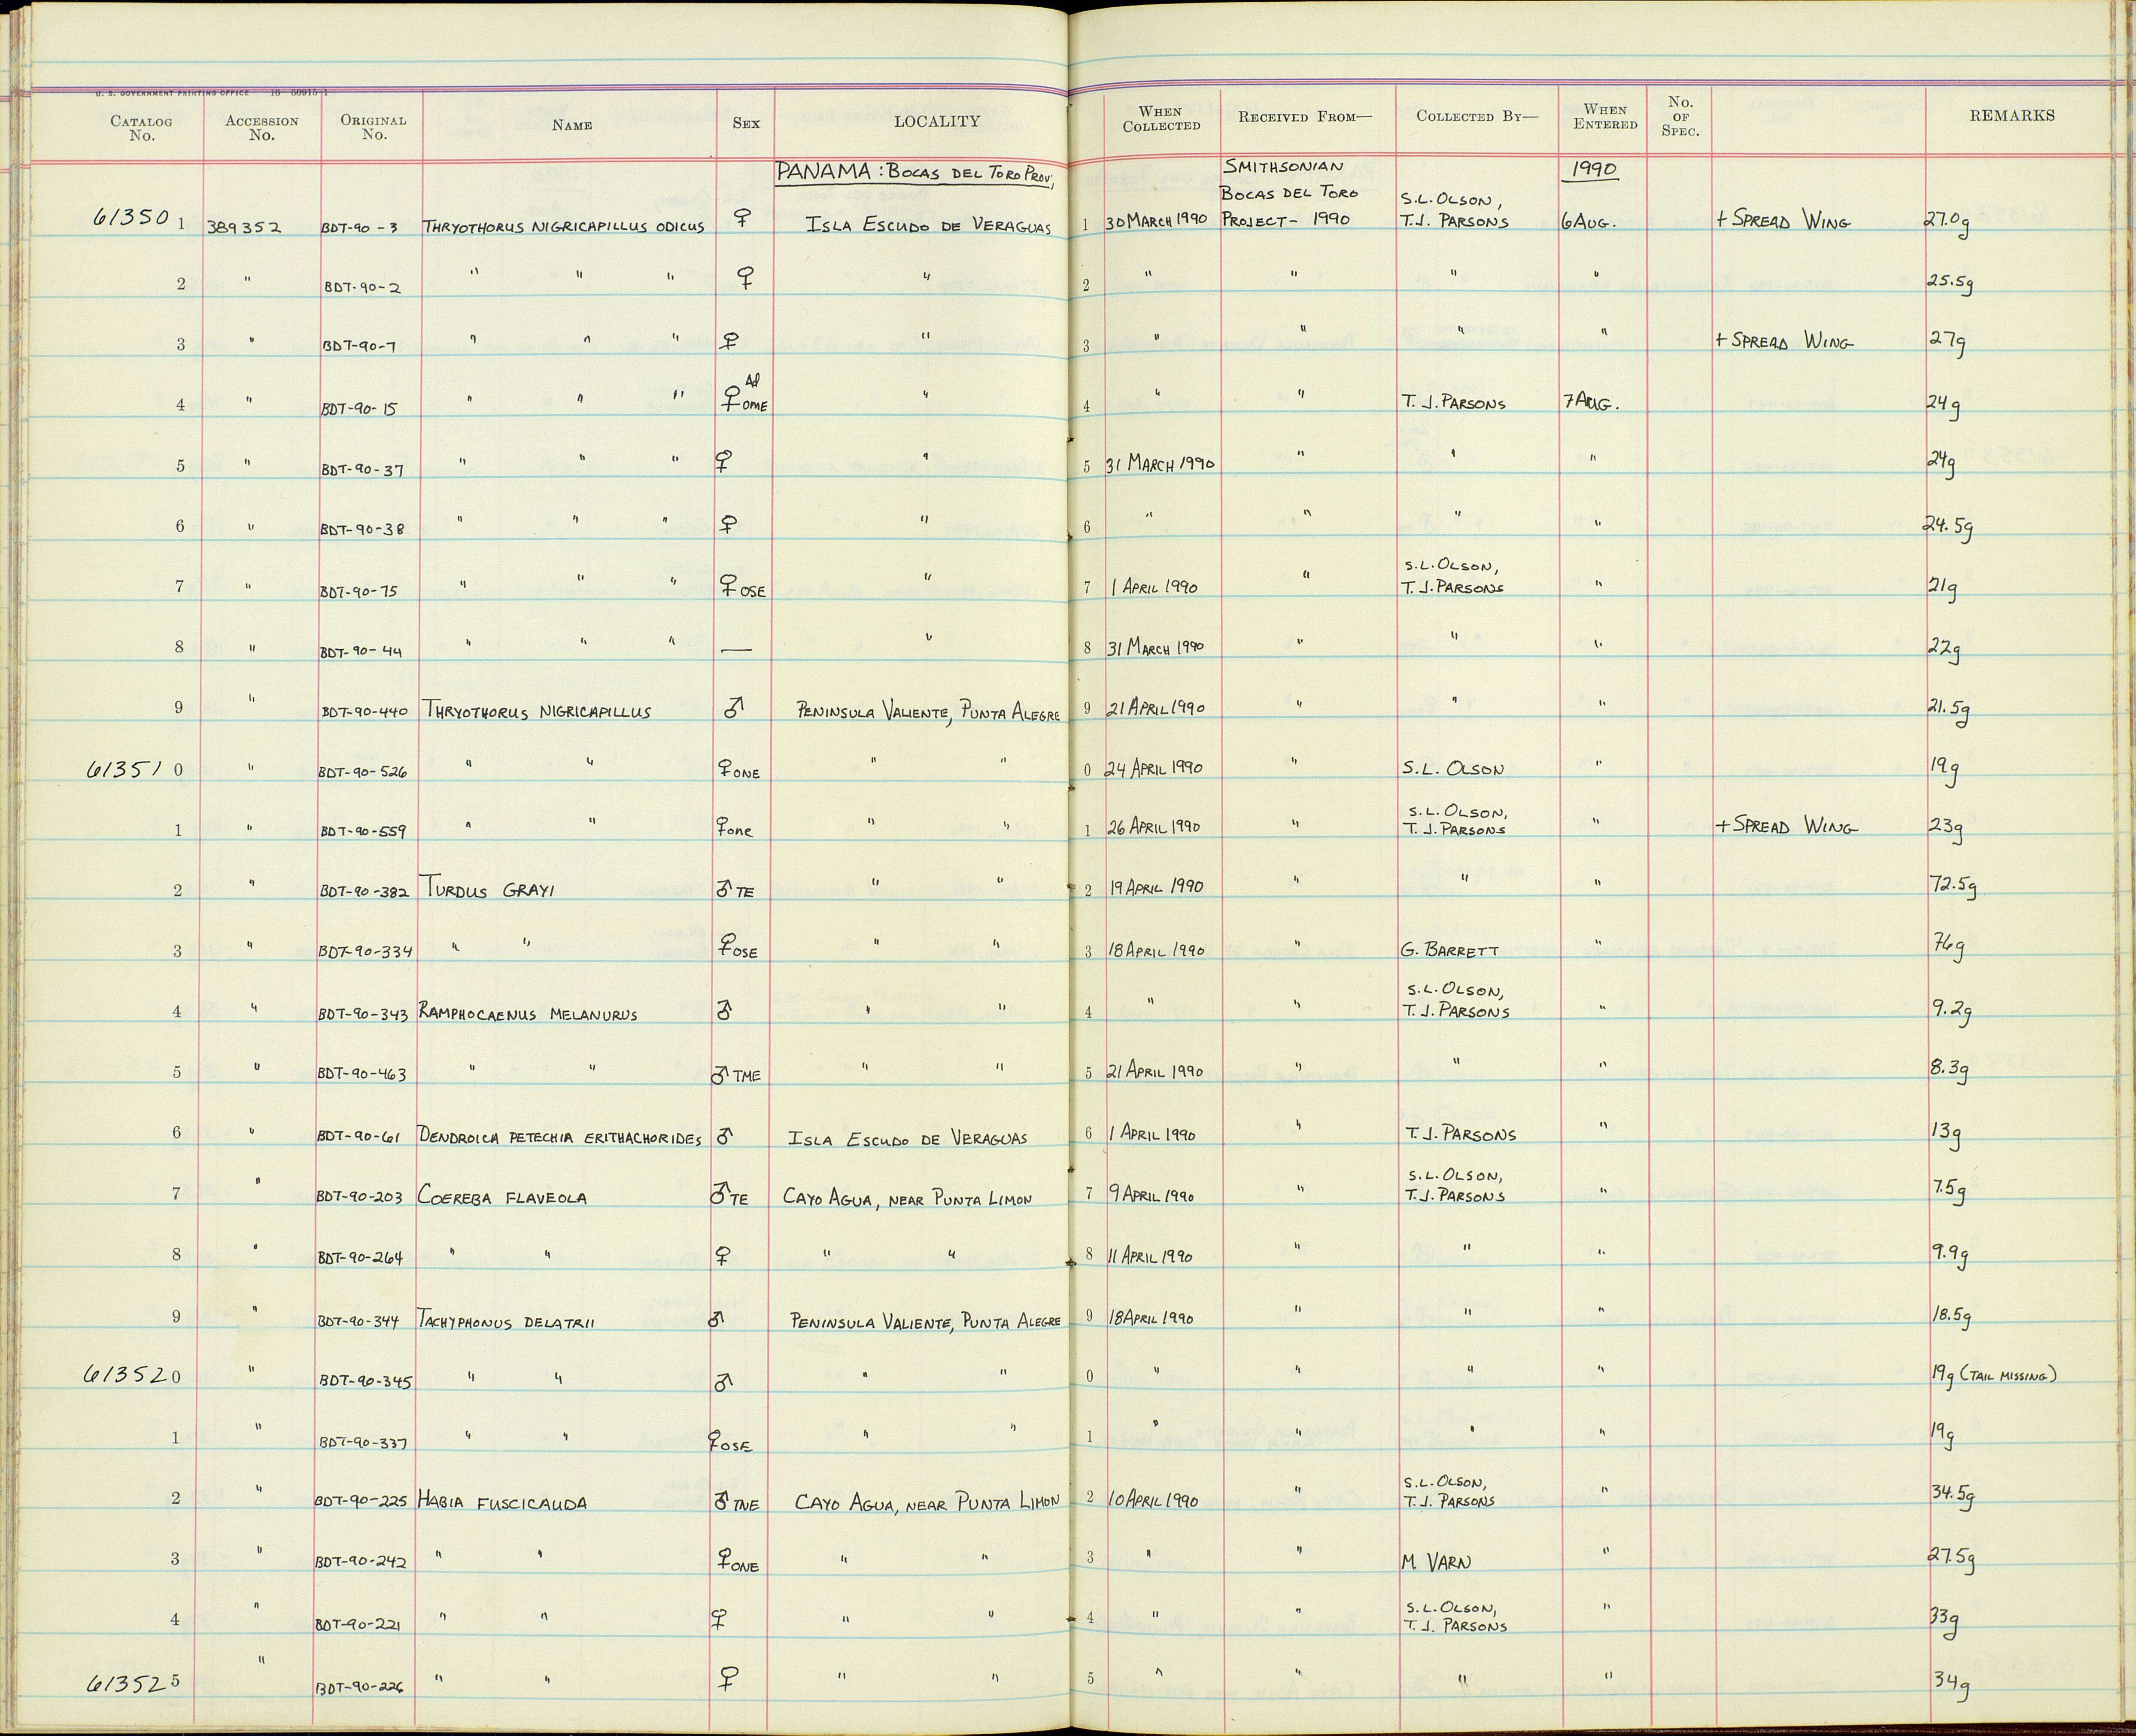 U. S. GOVERNMENT PRINTING OFFICE 16—60915-1
CATALOG No. ACCESSION No. ORIGINAL No. NAME SEX LOCALITY WHEN COLLECTED RECEIVED FROM— COLLECTED BY— WHEN ENTERED No. OF SPEC. REMARKS
PANAMA: BOCAS DEL TORO PROV; SMITHSONIAN 1990
BOCAS DEL TORO S.L. OLSON,
613501 389352 BDT-90-3 THRYOTHORUS NIGRICAPILLUS ODICUS ♀ ISLA ESCUDO DE VERAGUAS 1 30 MARCH 1990 PROJECT - 1990 T.J. PARSONS 6 AUG. + SPREAD WING 27.0g
2 " BDT-90-2 " " " ♀ " 2 " " " " 25.5g
3 " BDT-90-7 " " " ♀ " 3 " " " " + SPREAD WING 27g
4 " BDT-90-15 " " " ♀ Ad OME " 4 " " T. J. PARSONS 7 AUG. 24g
5 " BDT-90-37 " " " ♀ " 5 31 MARCH 1990 " " " 24g
6 " BDT-90-38 " " " ♀ " 6 " " " " 24.5g
S.L. OLSON,
7 " BDT-90-75 " " " ♀ OSE " 7 1 APRIL 1990 " T. J. PARSONS " 21g
8 " BDT-90-44 " " " — " 8 31 MARCH 1990 " " " 22g
9 " BDT-90-440 THRYOTHORUS NIGRICAPILLUS ♂ PENINSULA VALIENTE, PUNTA ALEGRE 9 21 APRIL 1990 " " " 21.5g
613510 " BDT-90-526 " " ♀ ONE " " 0 24 APRIL 1990 " S.L. OLSON " 19g
S.L. OLSON,
1 " BDT-90-559 " " ♀ one " " 1 26 APRIL 1990 " T. J. PARSONS " + SPREAD WING 23g
2 " BDT-90-382 TURDUS GRAYI ♂ TE " " 2 19 APRIL 1990 " " " 72.5g
3 " BDT-90-334 " " ♀ OSE " " 3 18 APRIL 1990 " G. BARRETT " 76g
S.L. OLSON,
4 " BDT-90-343 RAMPHOCAENUS MELANURUS ♂ " " 4 " " T. J. PARSONS " 9.2g
5 " BDT-90-463 " " ♂ TME " " 5 21 APRIL 1990 " " " 8.3g
6 " BDT-90-61 DENDROICA PETECHIA ERITHACHORIDES ♂ ISLA ESCUDO DE VERAGUAS 6 1 APRIL 1990 " T. J. PARSONS " 13g
S.L. OLSON,
7 " BDT-90-203 COEREBA FLAVEOLA ♂ TE CAYO AGUA, NEAR PUNTA LIMON 7 9 APRIL 1990 " T. J. PARSONS " 7.5g
8 " BDT-90-264 " " ♀ " " 8 11 APRIL 1990 " " " 9.9g
9 " BDT-90-344 TACHYPHONUS DELATRII ♂ PENINSULA VALIENTE, PUNTA ALEGRE 9 18 APRIL 1990 " " " 18.5g
613520 " BDT-90-345 " " ♂ " " 0 " " " " 19g (TAIL MISSING)
1 " BDT-90-337 " " ♀ OSE " " 1 " " " " 19g
S.L. OLSON,
2 " BDT-90-225 HABIA FUSCICAUDA ♂ TNE CAYO AGUA, NEAR PUNTA LIMON 2 10 APRIL 1990 " T. J. PARSONS " 34.5g
3 " BDT-90-242 " " ♀ ONE " " 3 " " M VARN " 27.5g
S.L. OLSON,
4 " BDT-90-221 " " ♀ " " 4 " " T. J. PARSONS " 33g
613525 " BDT-90-226 " " ♀ " " 5 " " " " 34g